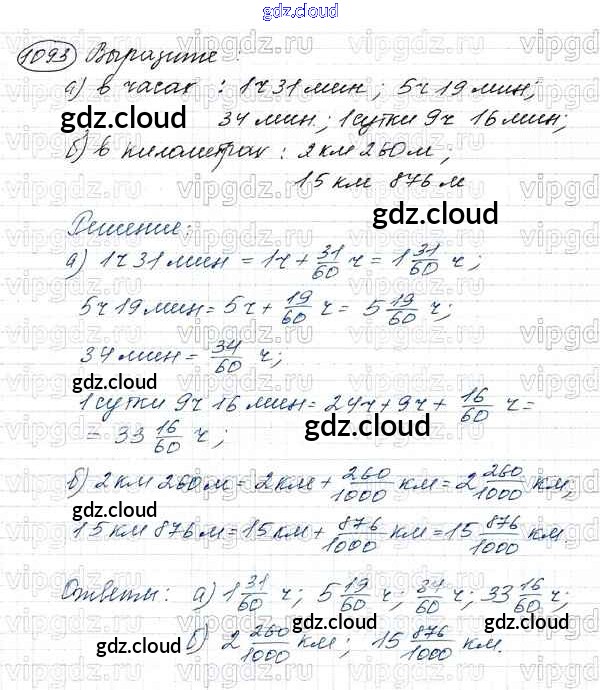 gdz.cloud
1093 Выразите:
а) в часах : 1ч 31 мин; 5ч 19 мин;
gdz.cloud 34 мин; 1 сутки 9ч 16 мин;
б) в километрах: 2 км 260 м;
15 км 876 м
gdz.cloud
Решение:
а) 1ч 31 мин = 1ч + 31/60 ч = 1 31/60 ч;
5ч 19 мин = 5ч + 19/60 ч = 5 19/60 ч;
34 мин = 34/60 ч;
gdz.cloud
1 сутки 9ч 16 мин = 24ч + 9ч + 16/60 ч =
= 33 16/60 ч;
gdz.cloud
б) 2 км 260 м = 2 км + 260/1000 км = 2 260/1000 км,
15 км 876 м = 15 км + 876/1000 км = 15 876/1000 км.
gdz.cloud
Ответы: а) 1 31/60 ч; 5 19/60 ч; 34/60 ч; 33 16/60 ч;
gdz.cloud
б) 2 260/1000 км; 15 876/1000 км.
gdz.cloud gdz.cloud